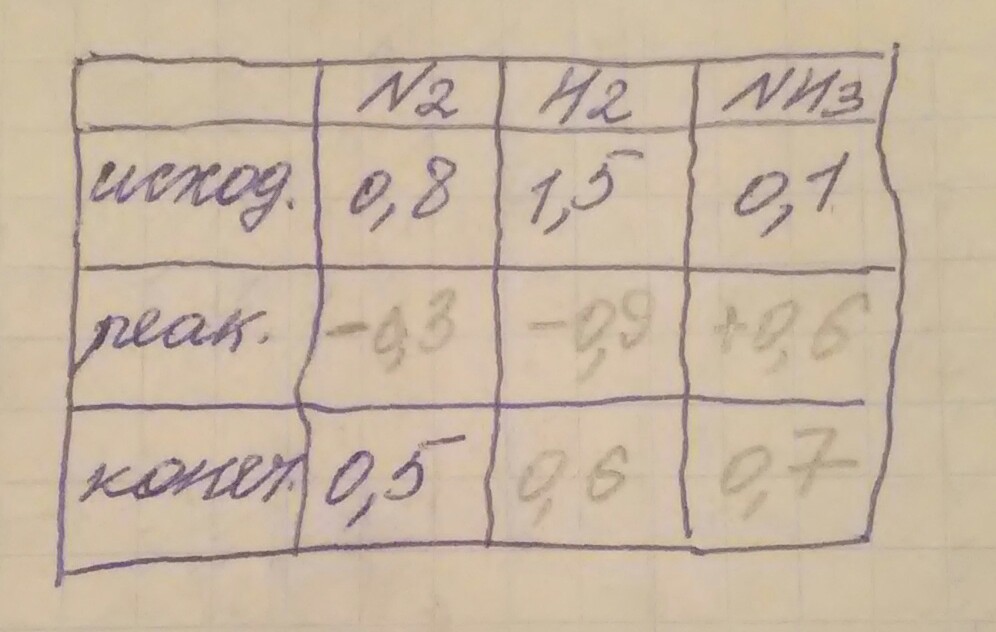 N2 H2 NH3
исход. 0,8 1,5 0,1
реак. -0,3 -0,9 +0,6
конеч. 0,5 0,6 0,7